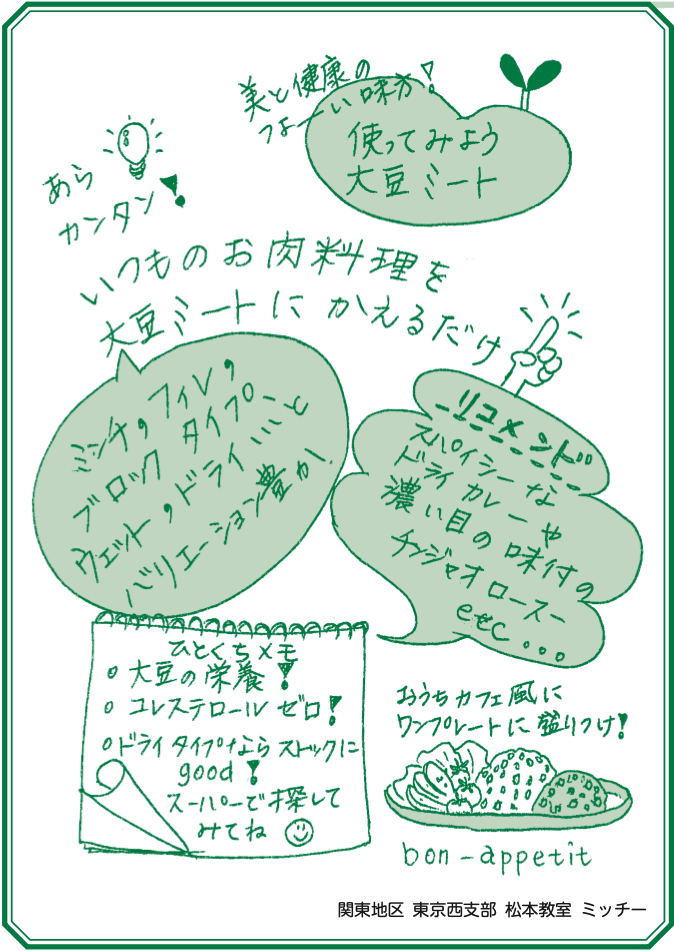 美と健康の
つよーい味方!
使ってみよう
大豆ミート
あら
カンタン!
いつものお肉料理を
大豆ミートにかえるだけ
ミンチ,フィレ,
ブロックタイプー
ウェット,ドライ…と
バリエーション豊か!
リコメンド
スパイシーな
ドライカレーや
濃い目の味付の
チンジャオロースー
etc...
ひとくちメモ
○大豆の栄養!
○コレステロールゼロ!
○ドライタイプならストックに
good!
スーパーで探して
みてね
おうちカフェ風に
ワンプレートに盛りつけ!
bon-appetit
関東地区 東京西支部 松本教室 ミッチー